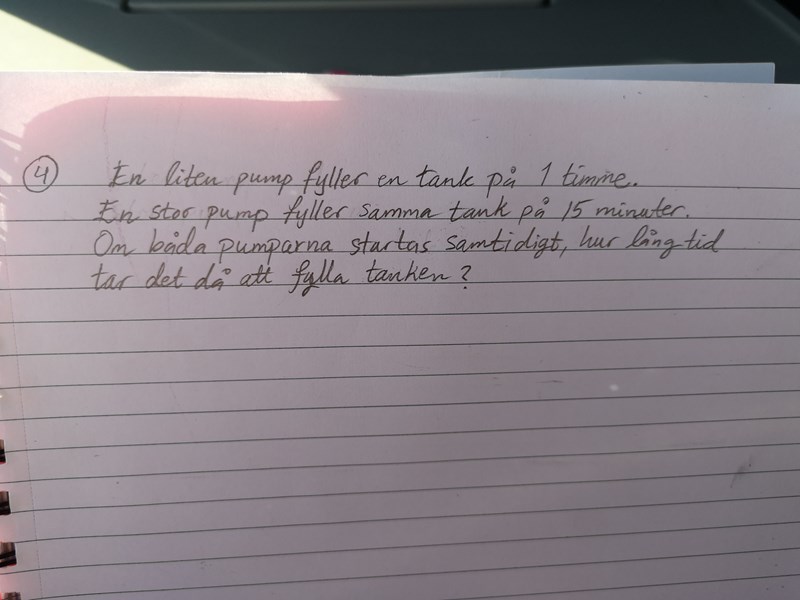 4 En liten pump fyller en tank på 1 timme.
En stor pump fyller samma tank på 15 minuter.
Om båda pumparna startas samtidigt, hur lång tid
tar det då att fylla tanken?